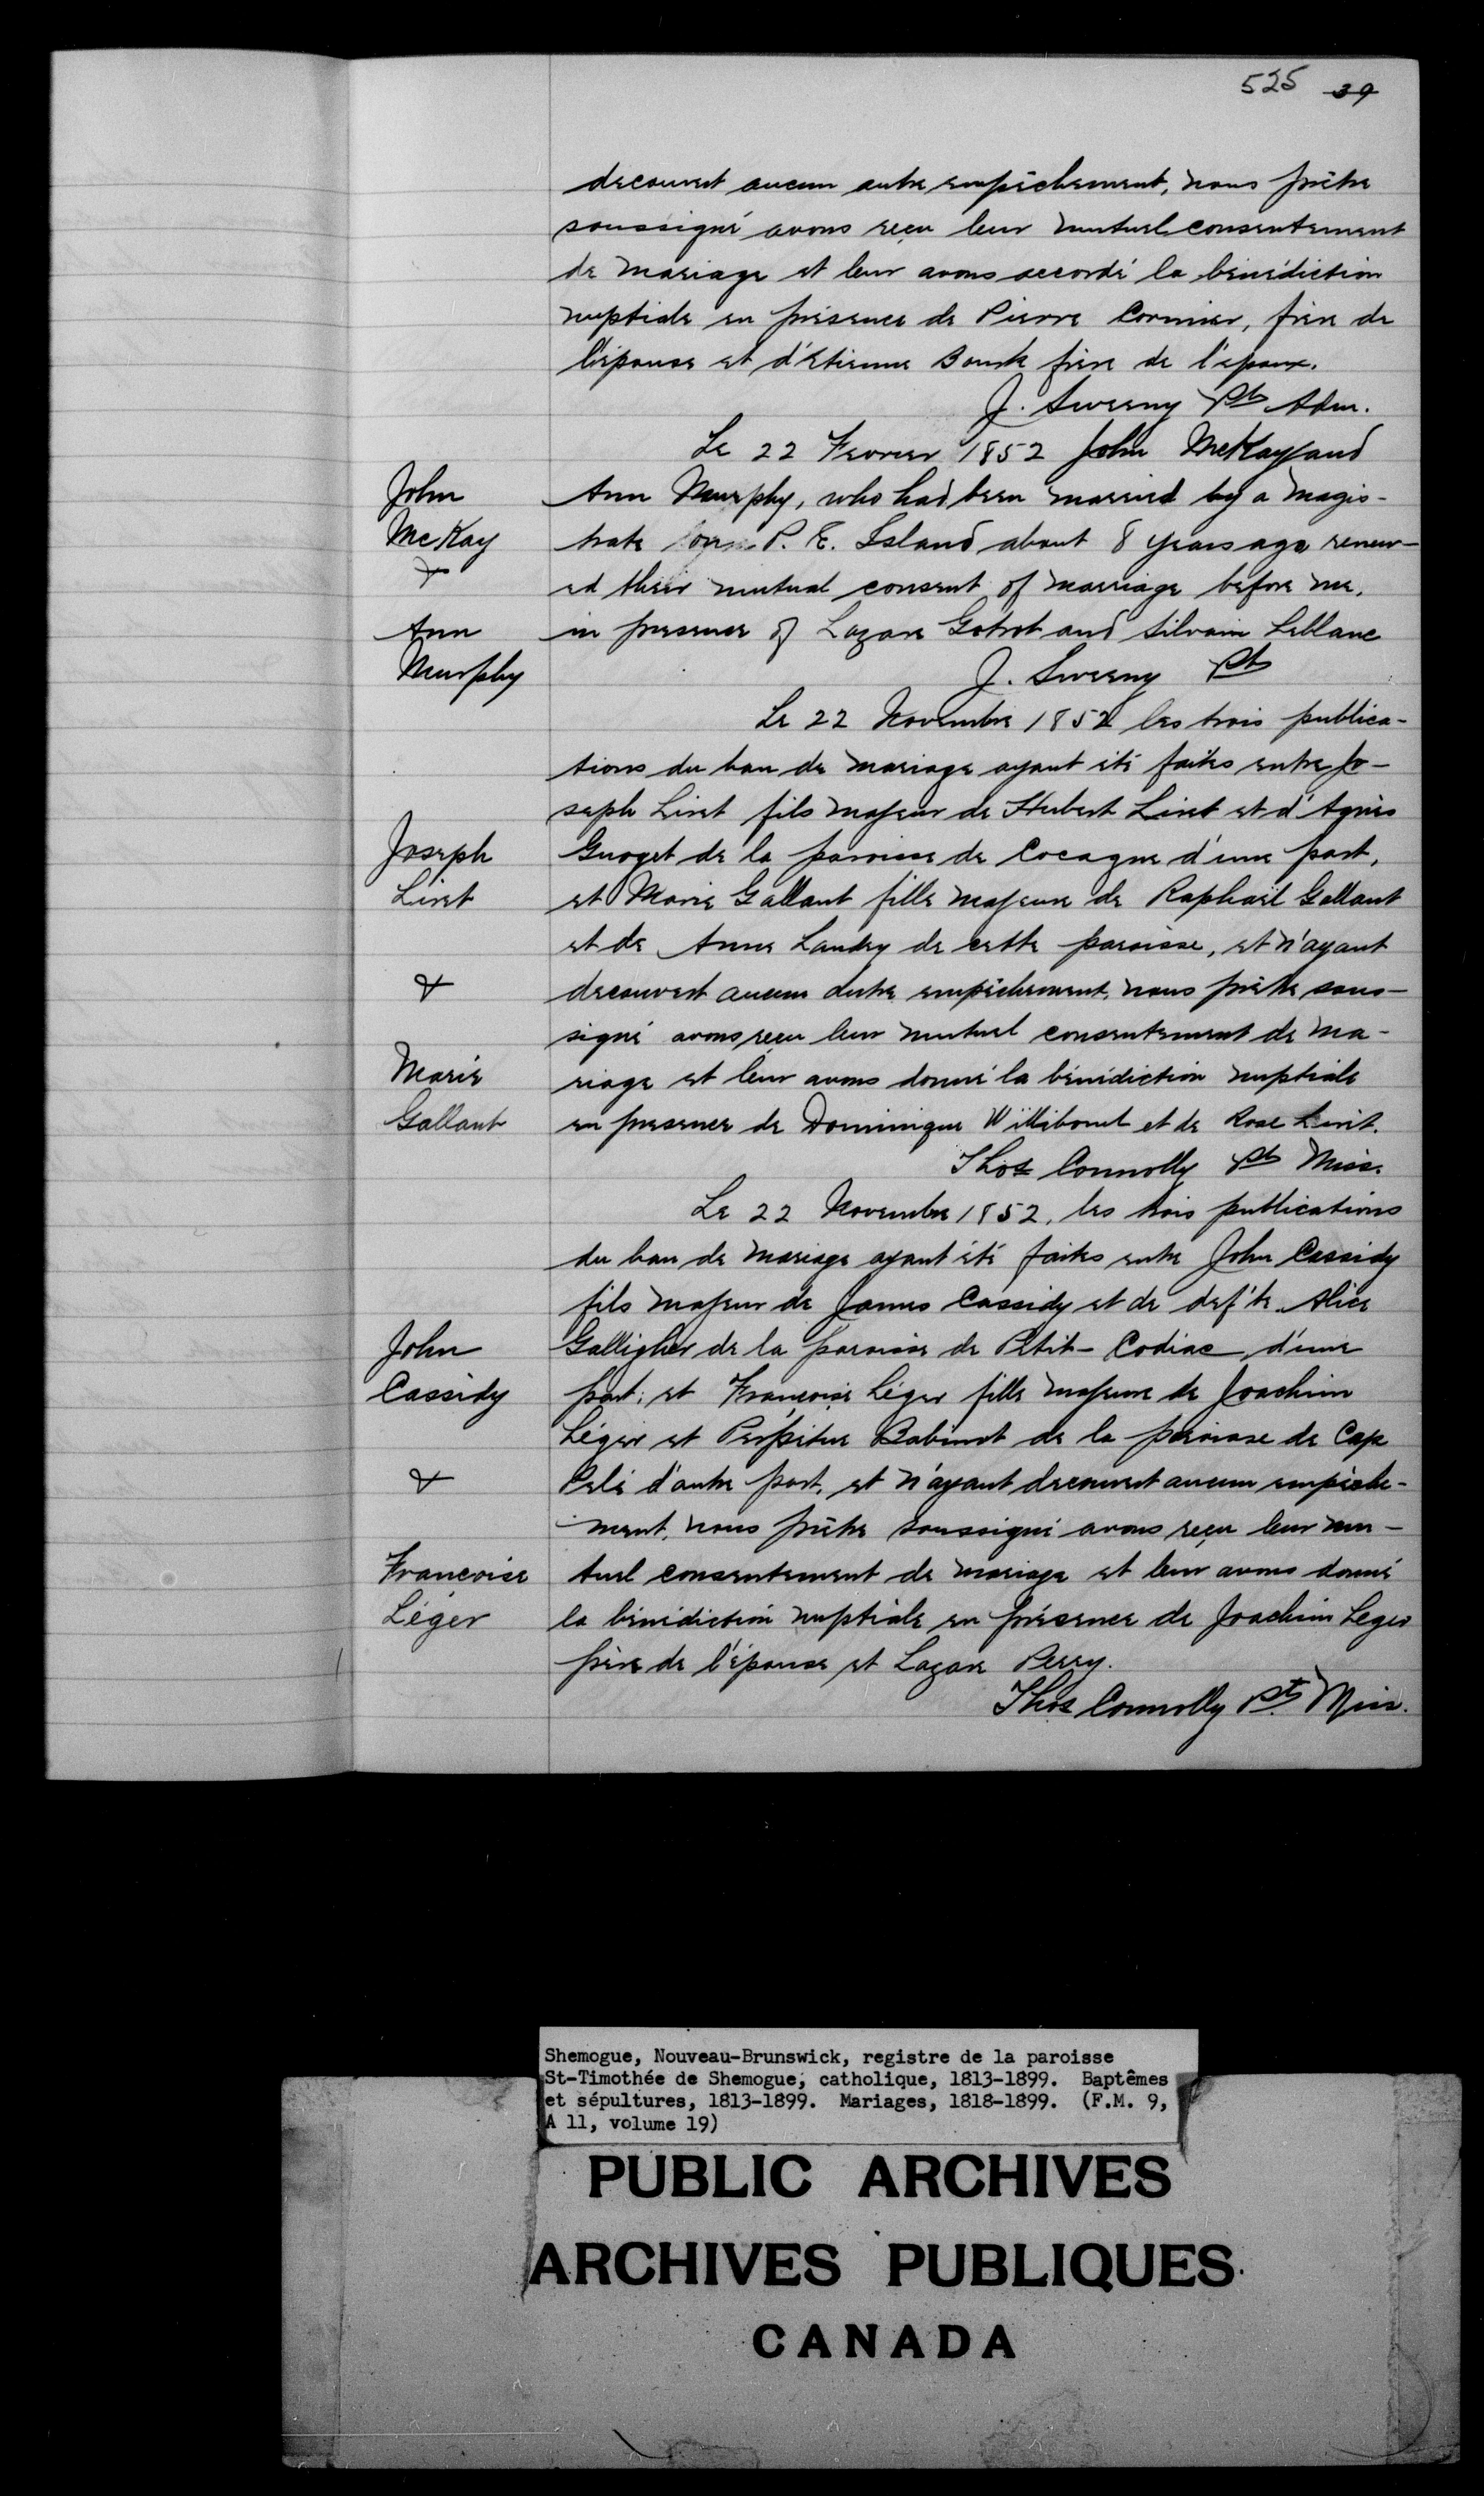 525 39
decouvert aucun autre empêchement, nous prêtre
soussigné avons reçu leur mutuel consentement
de mariage et leur avons accordé la bénédiction
nuptiale en présence de Pierre Cormier, frère de
l'épouse et d'Etienne Bourk frère de l'epoux.
J. Sweeny Pt Adm.
Le 22 Fevrier 1852 John McKay and
John
Ann Murphy, who had been married by a magis-
McKay
trate P. E. Island about 8 years ago renew-
+
ed their mutual consent of marriage before me,
Ann
in presence of Lazare Gotrot and Silvain Leblanc
Murphy
J. Sweeny Pt
Le 22 Novembre 1852 les trois publica-
tions du ban de mariage ayant été faites entre Jo-
seph Liret fils majeur de Hubert Liret et d'Agnès
Joseph
Guoget de la paroisse de Cocagne d'une part,
Liret
et Marie Gallant fille majeure de Raphaël Gallant
et de Anne Landry de cette paroisse, et n'ayant
&
decouvert aucun autre empêchement, nous prêtre sous-
signé avons reçu leur mutuel consentement de ma-
Marie
riage et leur avons donné la bénédiction nuptiale
Gallant
en presence de Dominique et de Rose Livit.
Thos Connolly Pt Miss.
Le 22 Novembre 1852, les trois publications
du ban de mariage ayant été faites entre John Cassidy
fils majeur de James Cassidy et de def'te Alice
John
Galligher de la paroisse de Petit-Codiac d'une
Cassidy
part; et Françoise Léger fille majeure de Joachim
Léger et Perpétue Babinot de la paroisse de Cap
&
Pelé d'autre part, et n'ayant decouvert aucun empêche-
ment, nous prêtre soussigné avons reçu leur mu-
Francoise
tuel consentement de mariage et leur avons donné
Léger
la bénédiction nuptiale en présence de Joachim Leger
père de l'épouse et Lazare Perry.
Thos Connolly Pt. Miss.
Shemogue, Nouveau-Brunswick, registre de la paroisse
St-Timothée de Shemogue, catholique, 1813-1899. Baptêmes
et sépultures, 1813-1899. Mariages, 1818-1899. (F.M. 9,
A 11, volume 19)
PUBLIC ARCHIVES
ARCHIVES PUBLIQUES
CANADA